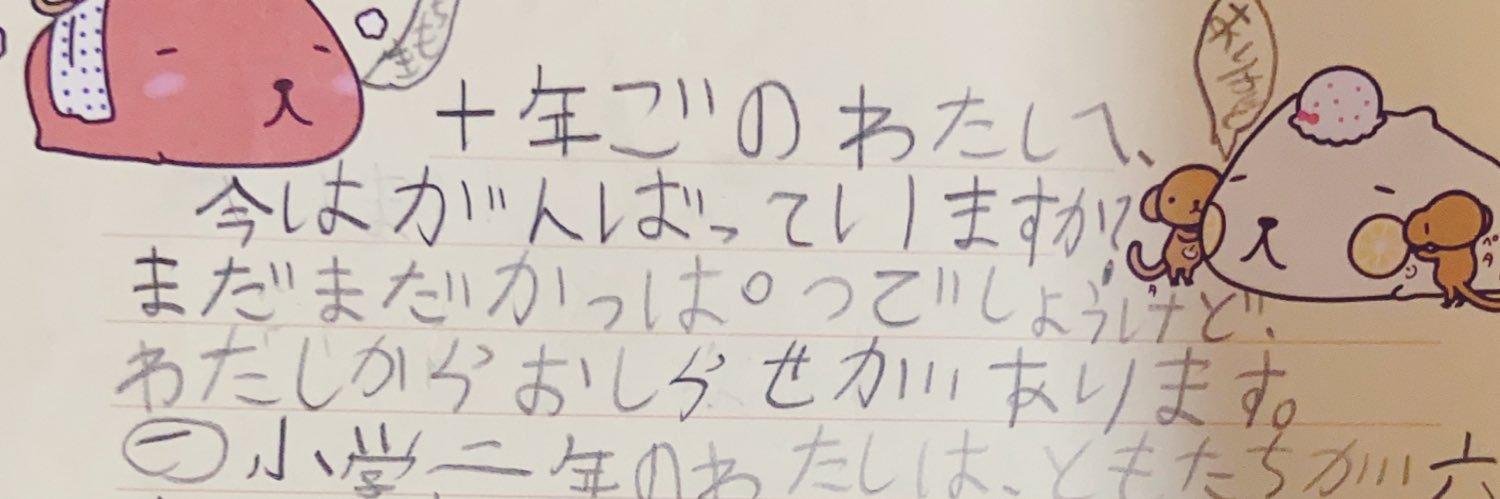 きもち
おりがみ
十年ごのわたしへ、
今はがんばっていますか?
まだまだかっぱってでしょうけど、
わたしからおしらせがあります。
㊁小学二年のわたしは、ともたちが六
ペタ
タ